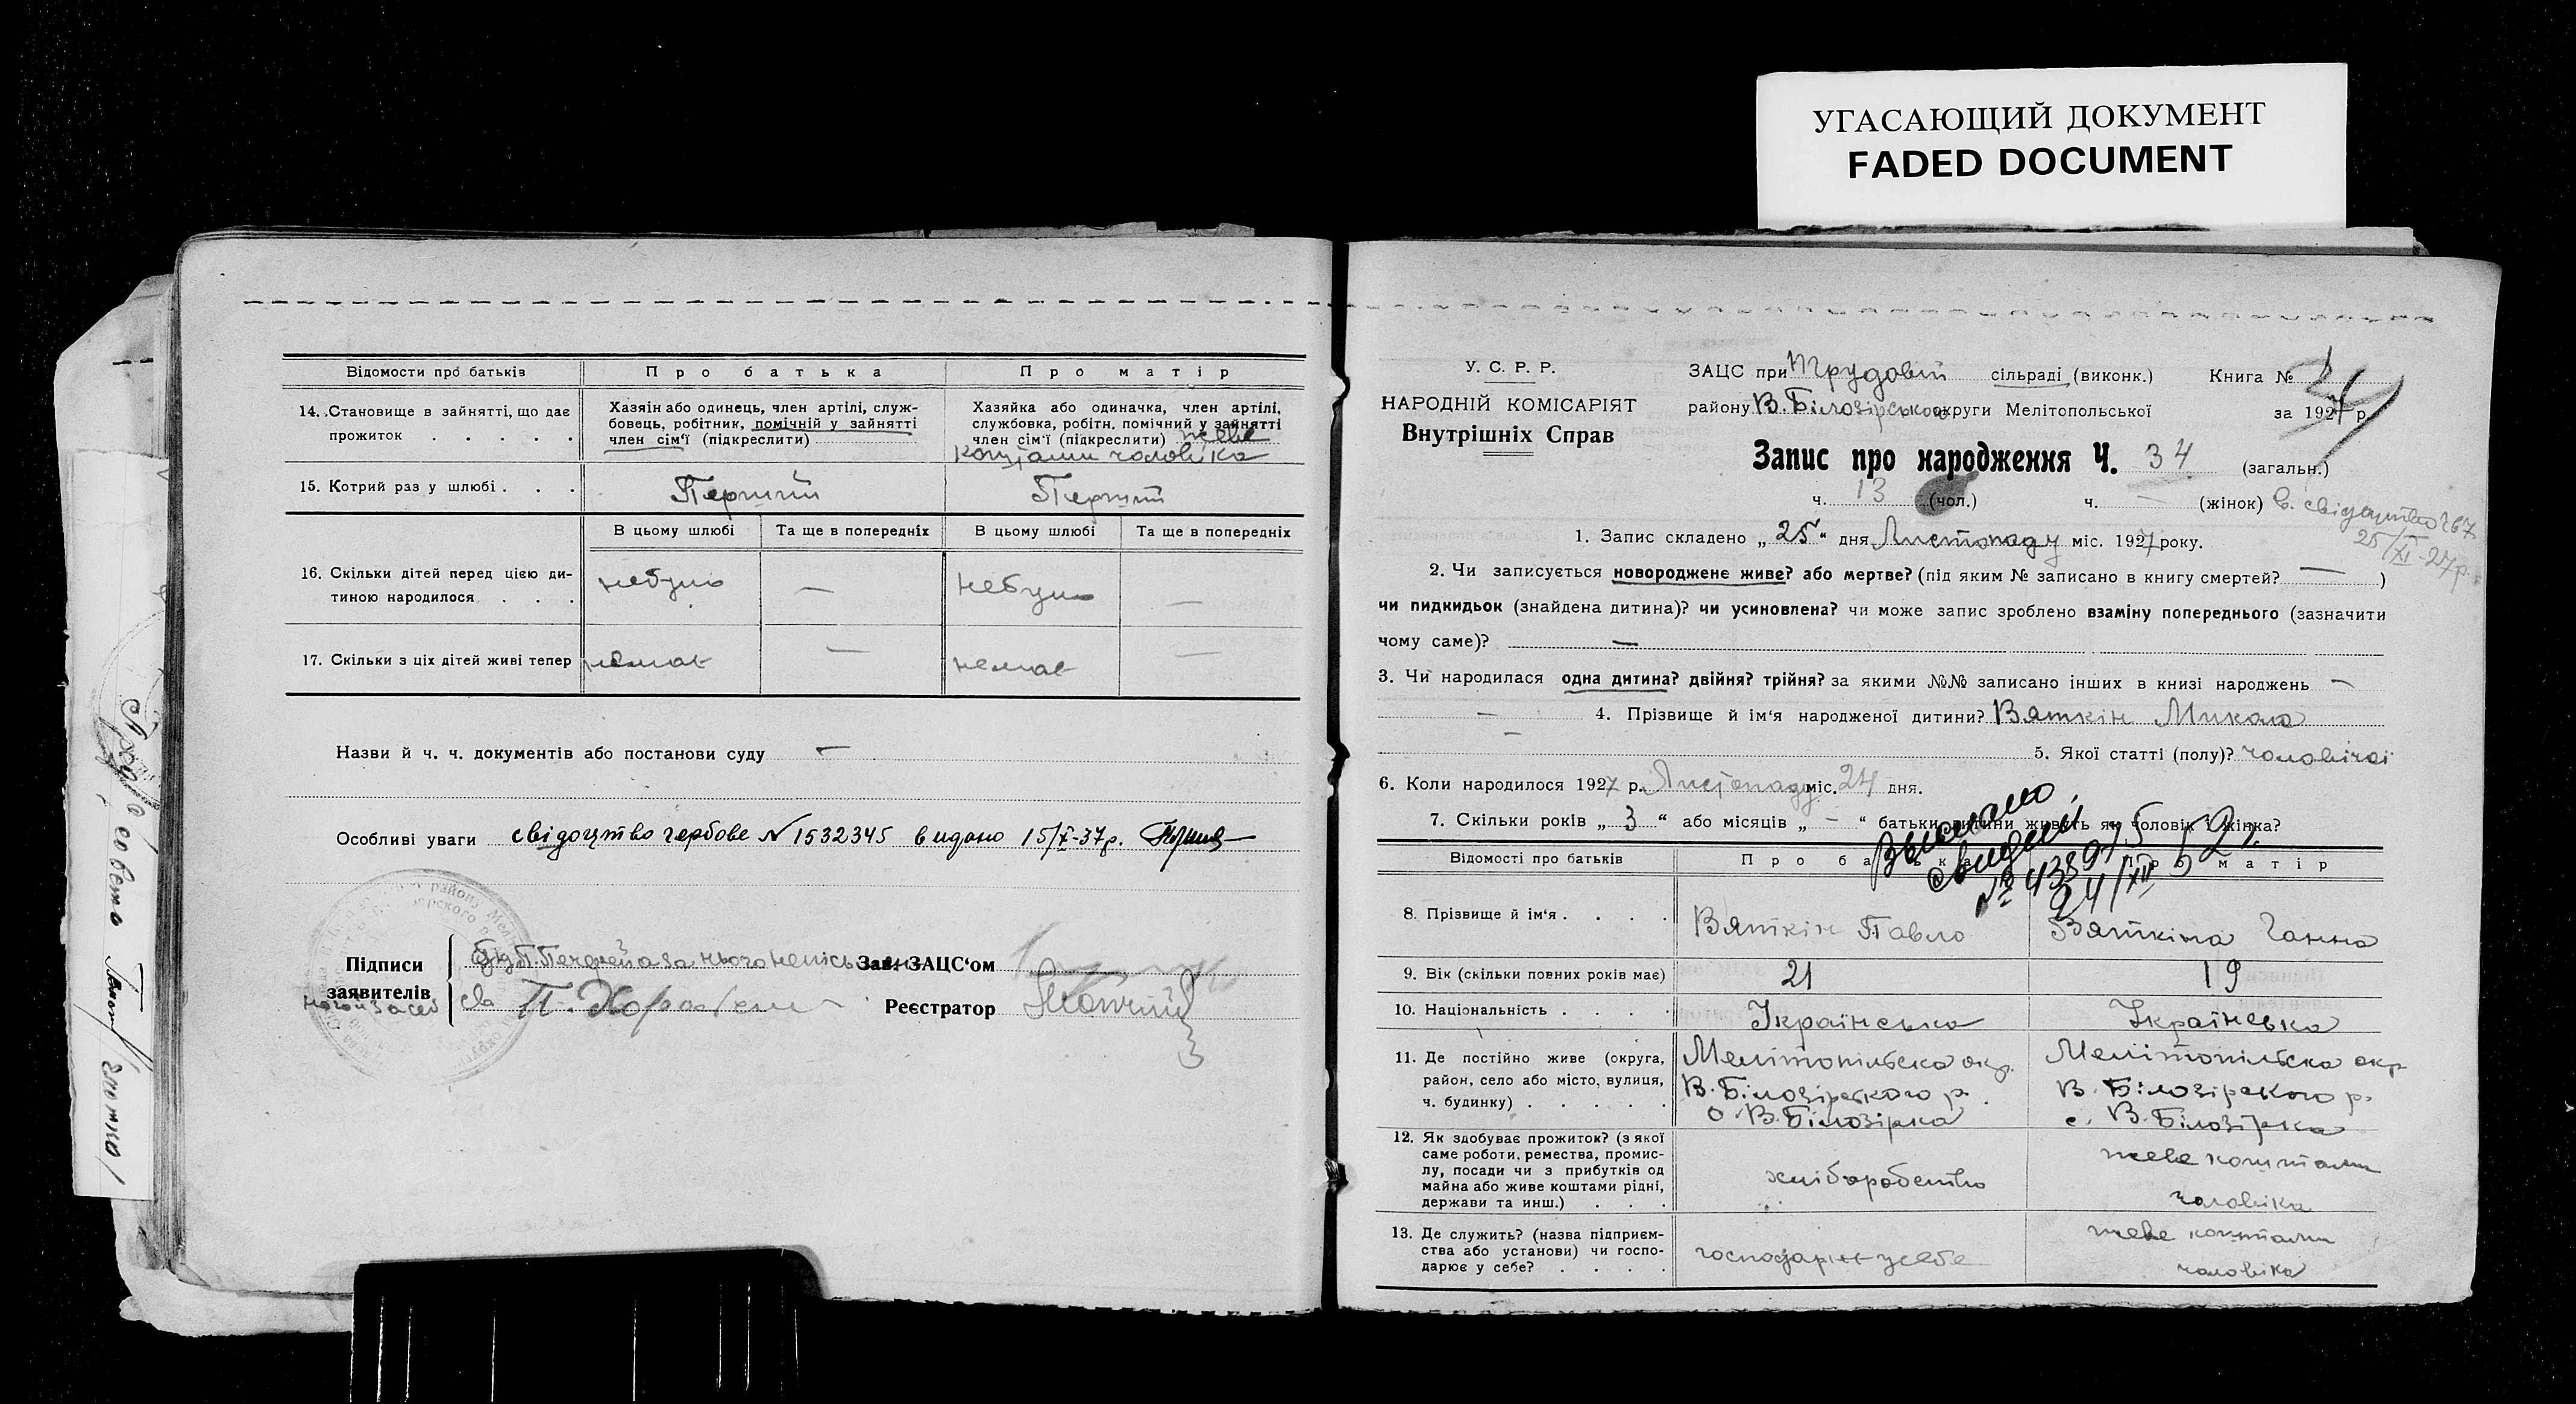 УГАСАЮЩИЙ ДОКУМЕНТ
FADED DOCUMENT
Відомости про батьків
Про батька
Про матір
14. Становище в зайнятті, що дає
прожиток . . . . .
Хазяін або одинець, член артілі, служ-
бовець, робітник, помічній у зайнятті
член сім'ї (підкреслити)
Хазяйка або одиначка, член артілі,
службовка, робітн. помічний у зайнятті
член сім'ї (підкреслити) живе
коштами чоловіка
15. Котрий раз у шлюбі . . .
Перший
Перший
В цьому шлюбі
Та ще в попередніх
В цьому шлюбі
Та ще в попередніх
16. Скільки дітей перед цією ди-
тиною народилося . . .
небуло
—
небуло
—
17. Скільки з ціх дітей живі тепер
немає
—
немає
—
Назви й ч. ч. документів або постанови суду —
Особливі уваги свідоцтво гербове № 1532345 видано 15/X-37р.
Підписи
заявителів
Зав. ЗАЦС'ом
Реєстратор
У. С. Р. Р.
НАРОДНІЙ КОМІСАРІЯТ
Внутрішніх Справ
ЗАЦС при Трудовій сільраді (виконк.) Книга №
району В. Білозірського округи Мелітопольської за 1927 р.
Запис про народження Ч. 34 (загальн.)
ч. 13 (чол.) ч. — (жінок)
в. свідоцтво
25/XI-27р.
1. Запис складено „ 25 “ дня Листопаду міс. 1927 року.
2. Чи записується новороджене живе? або мертве? (під яким № записано в книгу смертей? — )
чи пидкидьок (знайдена дитина)? чи усиновлена? чи може запис зроблено взаміну попереднього (зазначити
чому саме)? —
3. Чи народилася одна дитина? двійня? трійня? за якими №№ записано інших в книзі народжень —
— 4. Прізвище й ім'я народженої дитини? Вяткін Микола
— 5. Якої статті (полу)? чоловічої
6. Коли народилося 1927 р. Листопаду міс. 24 дня.
7. Скільки років „ 3 “ або місяців „ — “ батьки дитини живуть як чоловік і жінка?
Відомості про батьків
Про батька
Про матір
8. Прізвище й ім'я . . . .
Вяткін Павло
Вяткіна Ганна
9. Вік (скільки повних років має)
21
19
10. Національність . . . .
Українська
Українська
11. Де постійно живе (округа,
район, село або місто, вулиця,
ч. будинку) . . . . .
Мелітопільска окр.
В. Білозірского р.
с. В. Білозірка
Мелітопільска окр
В. Білозірского р.
с. В. Білозірка
12. Як здобуває прожиток? (з якої
саме роботи, ремества, промис-
лу, посади чи з прибутків од
майна або живе коштами рідні,
держави та инш.) . . .
хліборобство
живе коштами
чоловіка
13. Де служить? (назва підприєм-
ства або установи) чи госпо-
дарює у себе? . . . .
живе коштами
чоловіка